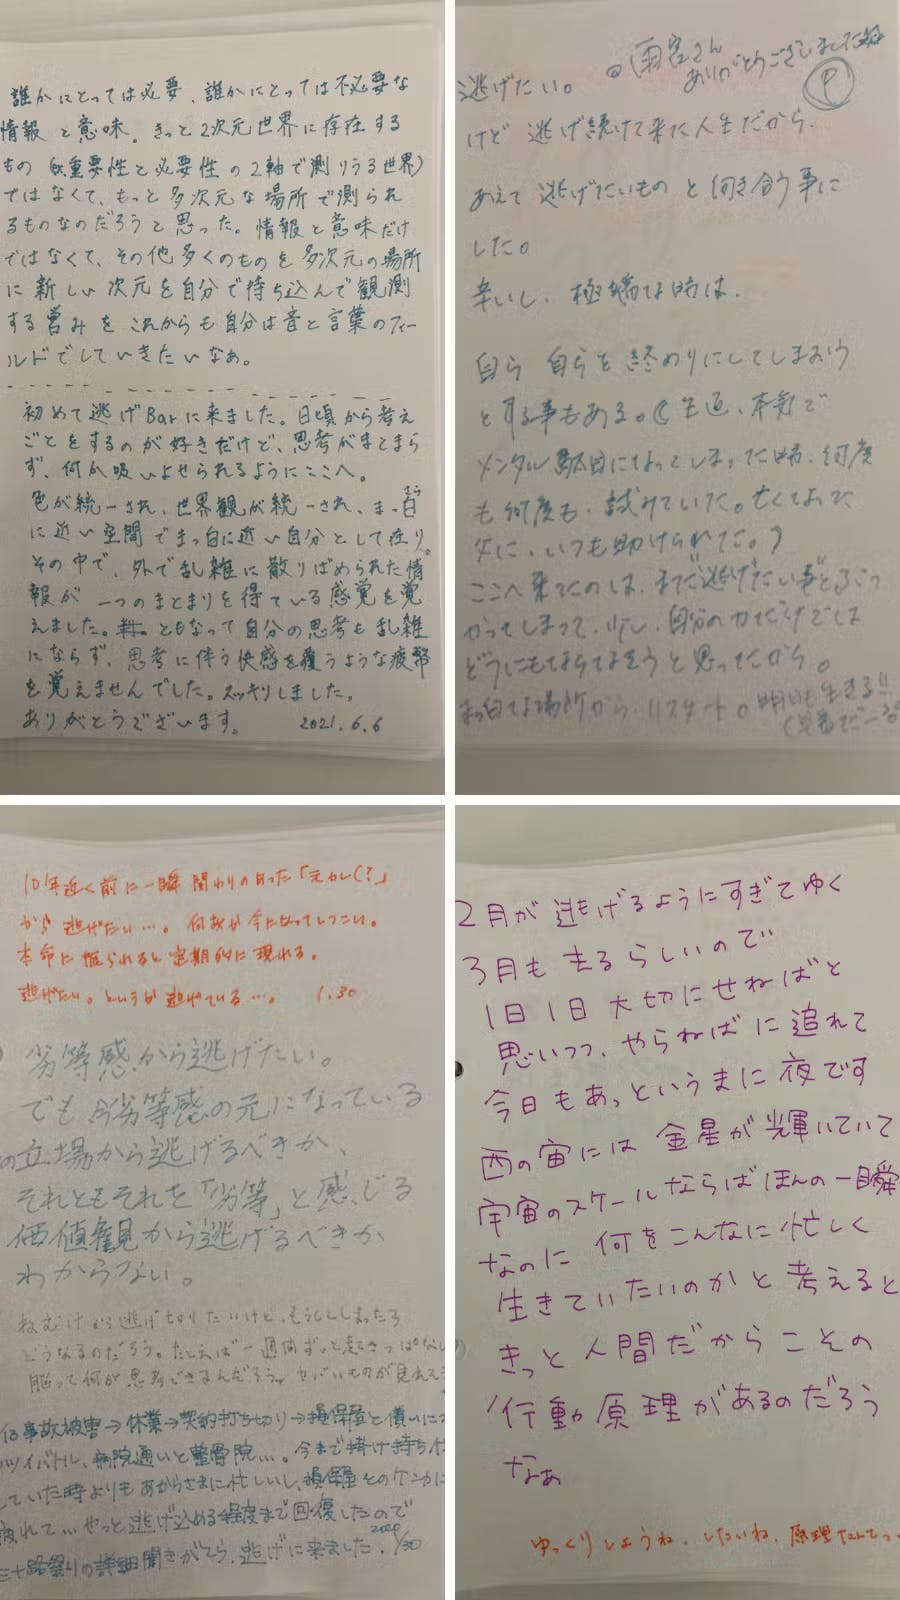 誰かにとっては必要、誰かにとっては不必要な
情報と意味。きっと2次元世界に存在する
もの(重要性と必要性の2軸で測りうる世界)
ではなくて、もっと多次元な場所で測られ
るものなのだろうと思った。情報と意味だけ
ではなくて、その他多くのものを多次元の場所
に新しい次元を自分で持ち込んで観測
する営みをこれからも自分は音と言葉のフィー
ルドでしていきたいなぁ。
初めて逃げBarに来ました。日頃から考え
ごとをするのが好きだけど、思考がまとまら
ず、何か吸いよせられるようにここへ。
色が統一され、世界観が統一され、まっ白
に近い空間でまっ白に近い自分として在り。
その中で、外で乱雑に散りばめられた情
報が一つのまとまりを得ている感覚を覚
えました。ともなって自分の思考も乱雑
にならず、思考に伴う快感を覆うような疲弊
を覚えませんでした。スッキリしました。
ありがとうございます。 2021.6.6
雨宮さん
ありがとうございましたね
P
逃げたい。
けど逃げ続けて来た人生だから、
あえて逃げたいものと向き合う事に
した。
辛いし、極端な時は、
自ら自らを終わりにしてしまおう
とする事もある。(生迄、本気で
メンタル駄目になってしまった時、何度
も何度も、試みていた。亡くなった
父に、いつも助けられてた。)
ここへ来たのは、まだ逃げたい事と
かってしまって、少し、自分の力だけでは
どうにもならなそうと思ってたから。
まっ白な場所から、リスタート。明日も生きる!!
10年近く前に一瞬関わりのあった「元カレ(?」
から逃げたい…。何故か今になってしつこい。
本命に振られると定期的に現れる。
逃げたい。というか逃げている…。 1.30
劣等感から逃げたい。
でも今劣等感の元になっている
の立場から逃げるべきか、
それともそれを「劣等」と感じる
価値観から逃げるべきか
わからない。
ねむけから逃げ切りたいけど、もうそしまったら
どうなるのだろう。たとえば一週間ずっと起きっぱな
脳って何が思考できるんだろう。ヤバいものが見れそ
事故被害→休業→契約打ち切り→損保屋と償いに
ツイバトル、病院通いと整骨院…。今まで掛け持ち
していた時よりもあからさまに忙しいし、損保屋とのケンカに
疲れて…やっと逃げ込める程度まで回復したので
三十路祭りの詳細聞きがてら、逃げに来ました。1/30
2月が逃げるようにすぎてゆく
3月も去るらしいので
1日1日大切にせねばと
思いつつ、やらねばに追れて
今日もあっというまに夜です
西の宙には金星が輝いていて
宇宙のスケールならばほんの一瞬
なのに何をこんなに忙しく
生きていたいのかと考えると
きっと人間だからこその
行動原理があるのだろう
なぁ
ゆっくりしようね、したいね、原理なんてっ